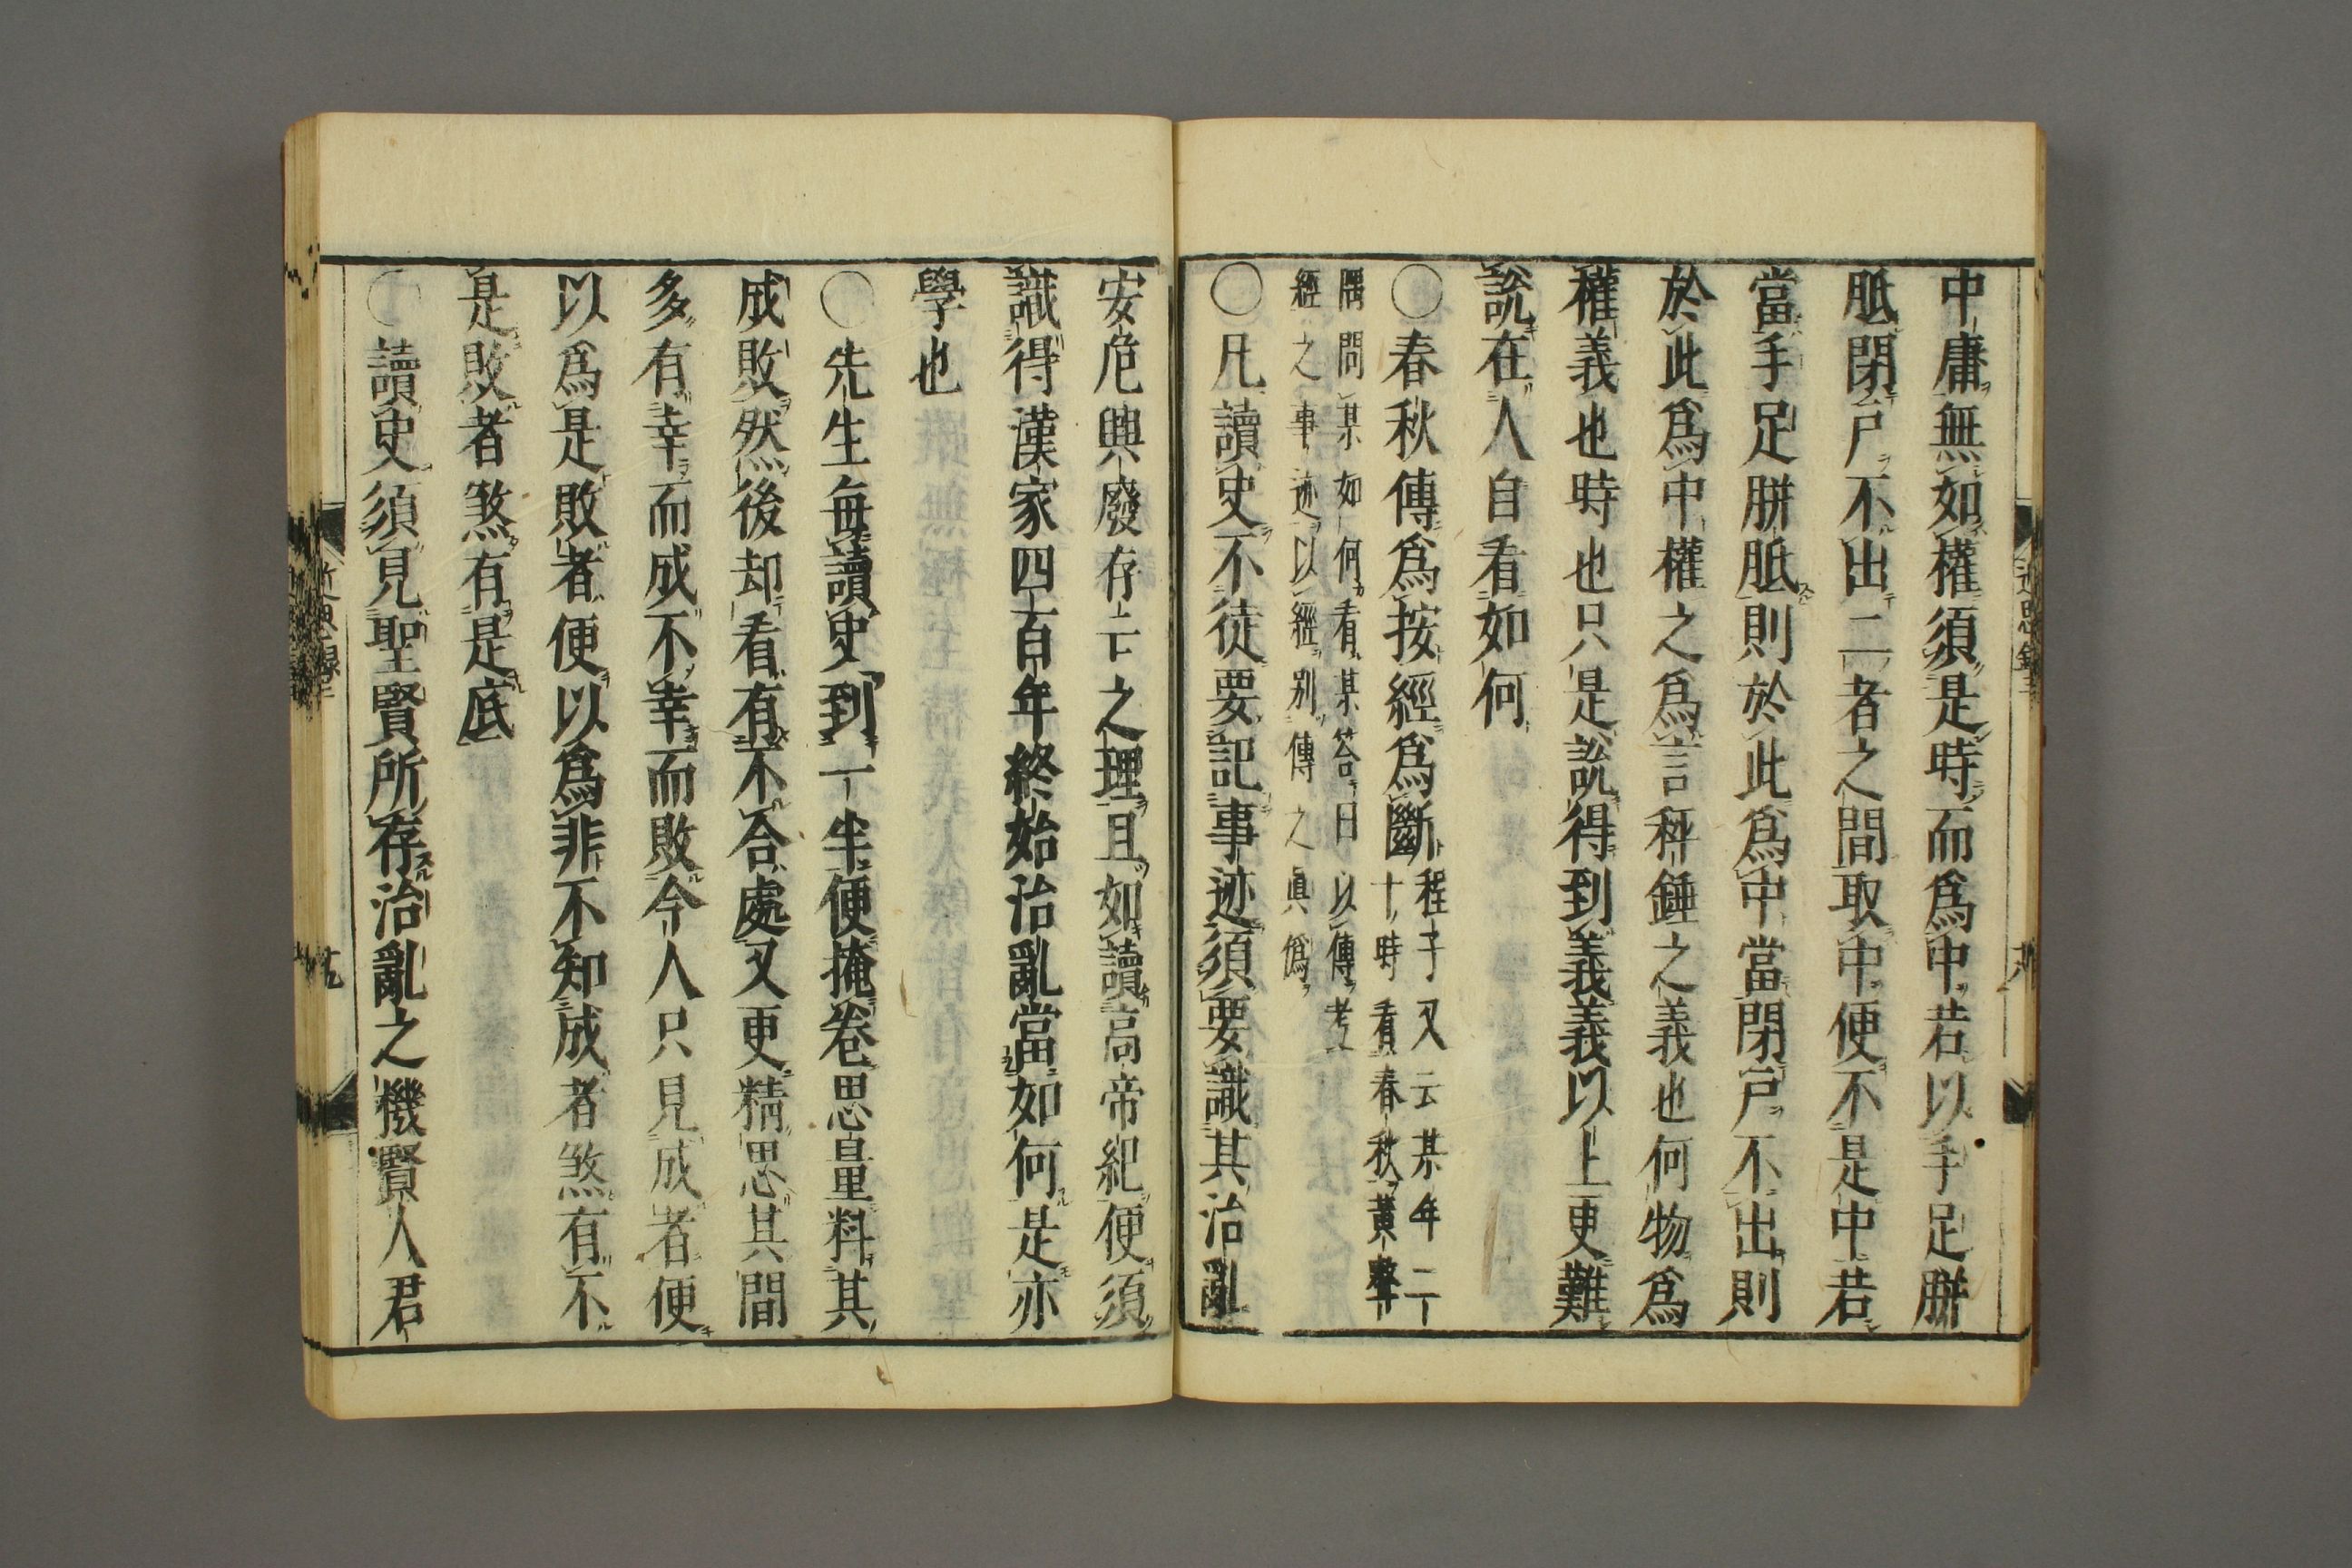 中庸無如權須是時而爲中若以手足胼
胝閉戸不出二者之間取中便不是中若
當手足胼胝則於此爲中當閉戸不出則
於此爲中權之爲言秤錘之義也何物爲
權義也時也只是說得到義義以上更難
說在人自看如何
○春秋傳爲按經爲斷
程子又云某年二
十時看春秋黃聱
隅問某如何看某答曰以傳考
經之事迹以經別傳之眞僞
○凡讀史不徒要記事迹須要識其治亂
安危興廢存亡之理且如讀高帝紀便須
識得漢家四百年終始治亂當如何是亦
學也
○先生每讀史到一半便掩卷思量料其
成敗然後却看有不合處又更精思其間
多有幸而成不幸而敗今人只見成者便
以爲是敗者便以爲非不知成者煞有不
是敗者煞有是底
○讀史須見聖賢所存治亂之機賢人君
近思錄三